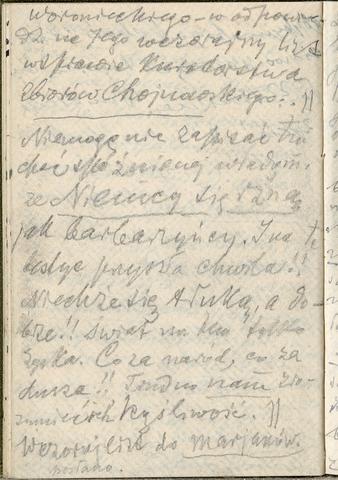 Woronieckiego – w odpowie-
dzi na jego wczorajszy list
w sprawie Kuratorstwa
zbiorów Chojnowskiego.. //
Niemogę nie zapisać tu
choć spóźnionej wiadom.
że Niemcy się rżną
jak barbarzyńcy. I na te
bestye przyszła chwila!!
Niechże się tłuką, a do-
brze!! Świat na tem tylko
zyska. Co za naród, co za
dusza!! Trudno nam zro-
zumieć ich myśliwość. //
Wczoraj list do Marjanów.
posłano.